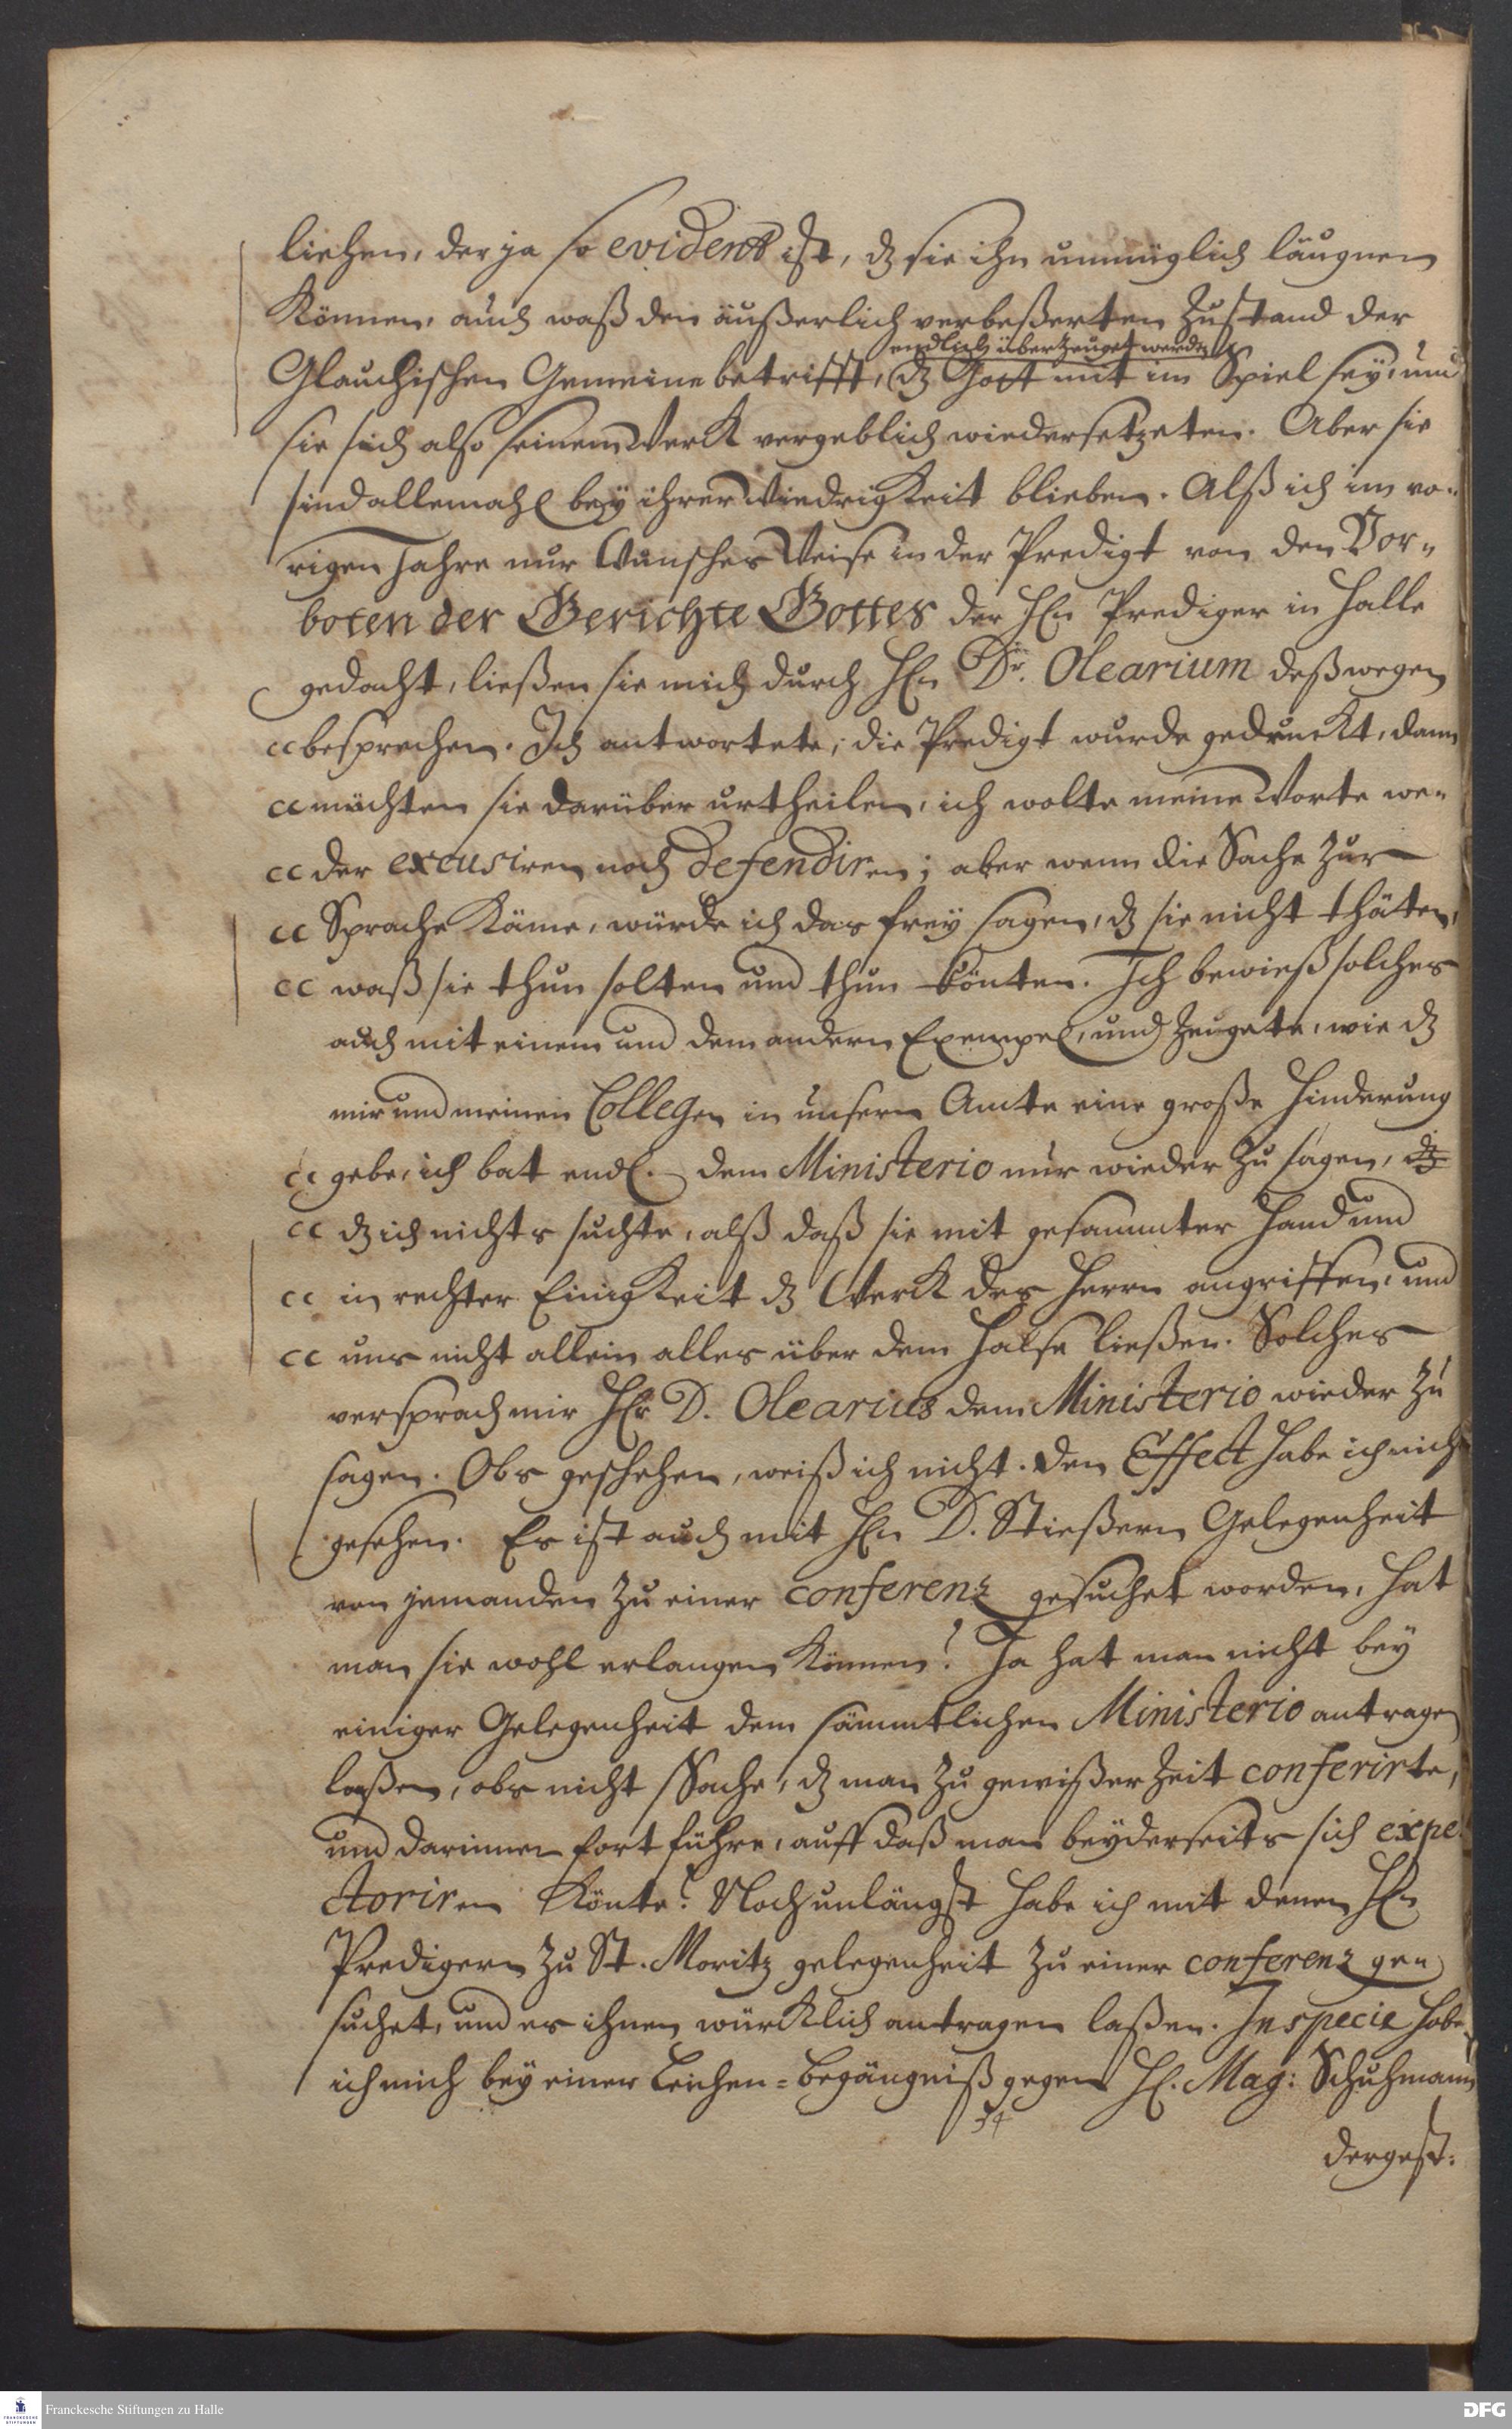 liehen, der ja so evident ist, dz sie ihn unmüglich läugnen
Können, auch waß den äußerlich verbeßerten Zustand der
endlich überzeuget werdẽ
Glauchischen Gemeine betrifft, dz Gott mit im Spiel sey, und
sie sich also seinem Werk vergeblich wiedersetzeten. Aber sie
sind allemahl bey ihrer WiedrigKeit blieben. Alß ich im vo-
rigen Jahre nur Wunsches Weise in der Predigt von den Vor-
boten der Gerichte Gottes der Hn Prediger in Halle
gedacht, ließen sie mich durch Hn Dr. Olearium deßwegen
cc besprechen. Ich antwortete, die Predigt wurde gedruckt, dann
cc möchten sie darüber urtheilen, ich wolte meine Worte we-
cc der excusiren noch defendiren; aber wenn die Sache zur
cc Sprache Käme, würde ich das frey sagen, dz sie nicht thäten,
cc waß sie thun solten und thun könten. Ich bewieß solches
auch mit einem und dem andern Exempel, und zeugete, wie dz
mir und meinen Collegen in unserm Amte eine große Hinderung
cc gebe, ich bat endl. dem Ministerio nur wieder zu sagen, dz
cc dz ich nichts suchte, alß daß sie mit gesammter Hand und
cc in rechter EinigKeit dz Werk des Herrn angriffen, und
cc uns nicht allein alles über dem Halse ließen. Solches
versprach mir Hr D. Olearius dem Ministerio wieder zu
sagen. Obs geschehen, weiß ich nicht. den Effect habe ich nicht
gesehen. Es ist auch mit Hn D. Stießern Gelegenheit
von jemanden zu einer conferenz gesuchet worden, hat
man sie wohl erlangen Können? Ja hat man nicht bey
einiger Gelegenheit dem sämmtlichen Ministerio antragen
laßen, obs nicht Sache, dz man zu gewißer Zeit conferirte,
und darinnen fort führe, auff daß man beyderseits sich expe-
ctoriren Könte? Noch unlängst habe ich mit denen Hn
Predigern zu St. Moritz gelegenheit zu einer conferenz ge-
suchet, und es ihnen würcklich antragen laßen. In specie habe
ich mich bey einer Leichen-begängniß gegen H. Mag: Schuhmann
34
dergest:
Franckesche Stiftungen zu Halle
FRANCKESCHE STIFTUNGEN
DFG